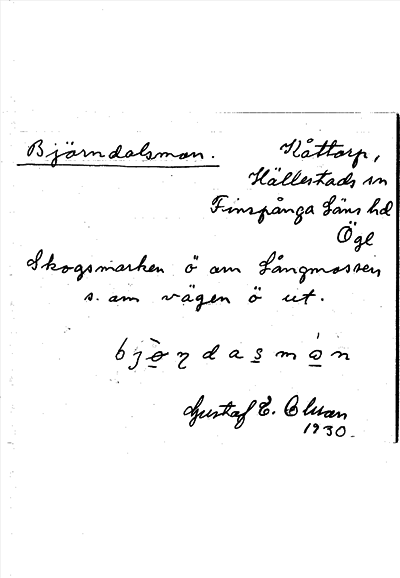 Björndalsmon.
Kåttorp,
Hällestads sn
Finspånga Läns hd
Ögl
Skogsmarken ö om Långmossen
s. om vägen ö ut.
Gustaf E. Olsson
1930.